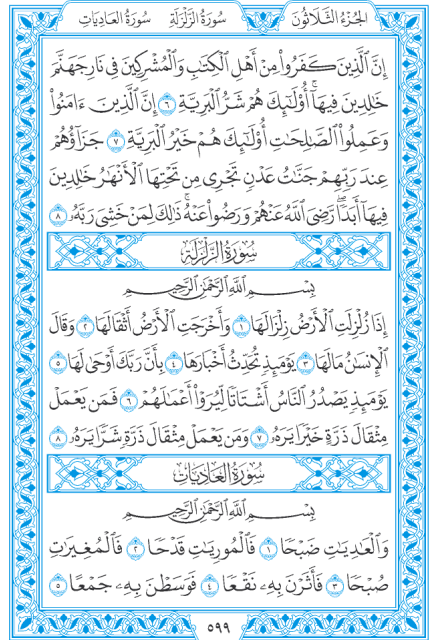 الجُزْءُ الثَّلَاثُونَ سُورَةُ الزَّلْزَلَةِ سُورَةُ العَادِيَاتِ
إِنَّ ٱلَّذِينَ كَفَرُوا۟ مِنْ أَهْلِ ٱلْكِتَٰبِ وَٱلْمُشْرِكِينَ فِى نَارِ جَهَنَّمَ
خَٰلِدِينَ فِيهَآ ۚ أُو۟لَٰٓئِكَ هُمْ شَرُّ ٱلْبَرِيَّةِ ٦ إِنَّ ٱلَّذِينَ ءَامَنُوا۟
وَعَمِلُوا۟ ٱلصَّٰلِحَٰتِ أُو۟لَٰٓئِكَ هُمْ خَيْرُ ٱلْبَرِيَّةِ ٧ جَزَآؤُهُمْ
عِندَ رَبِّهِمْ جَنَّٰتُ عَدْنٍ تَجْرِى مِن تَحْتِهَا ٱلْأَنْهَٰرُ خَٰلِدِينَ
فِيهَآ أَبَدًا ۖ رَّضِىَ ٱللَّهُ عَنْهُمْ وَرَضُوا۟ عَنْهُ ۚ ذَٰلِكَ لِمَنْ خَشِىَ رَبَّهُۥ ٨
سُورَةُ الزَّلْزَلَةِ
بِسْمِ ٱللَّهِ ٱلرَّحْمَٰنِ ٱلرَّحِيمِ
إِذَا زُلْزِلَتِ ٱلْأَرْضُ زِلْزَالَهَا ١ وَأَخْرَجَتِ ٱلْأَرْضُ أَثْقَالَهَا ٢ وَقَالَ
ٱلْإِنسَٰنُ مَا لَهَا ٣ يَوْمَئِذٍ تُحَدِّثُ أَخْبَارَهَا ٤ بِأَنَّ رَبَّكَ أَوْحَىٰ لَهَا ٥
يَوْمَئِذٍ يَصْدُرُ ٱلنَّاسُ أَشْتَاتًا لِّيُرَوْا۟ أَعْمَٰلَهُمْ ٦ فَمَن يَعْمَلْ
مِثْقَالَ ذَرَّةٍ خَيْرًا يَرَهُۥ ٧ وَمَن يَعْمَلْ مِثْقَالَ ذَرَّةٍ شَرًّا يَرَهُۥ ٨
سُورَةُ العَادِيَاتِ
بِسْمِ ٱللَّهِ ٱلرَّحْمَٰنِ ٱلرَّحِيمِ
وَٱلْعَٰدِيَٰتِ ضَبْحًا ١ فَٱلْمُورِيَٰتِ قَدْحًا ٢ فَٱلْمُغِيرَٰتِ
صُبْحًا ٣ فَأَثَرْنَ بِهِۦ نَقْعًا ٤ فَوَسَطْنَ بِهِۦ جَمْعًا ٥
٥٩٩